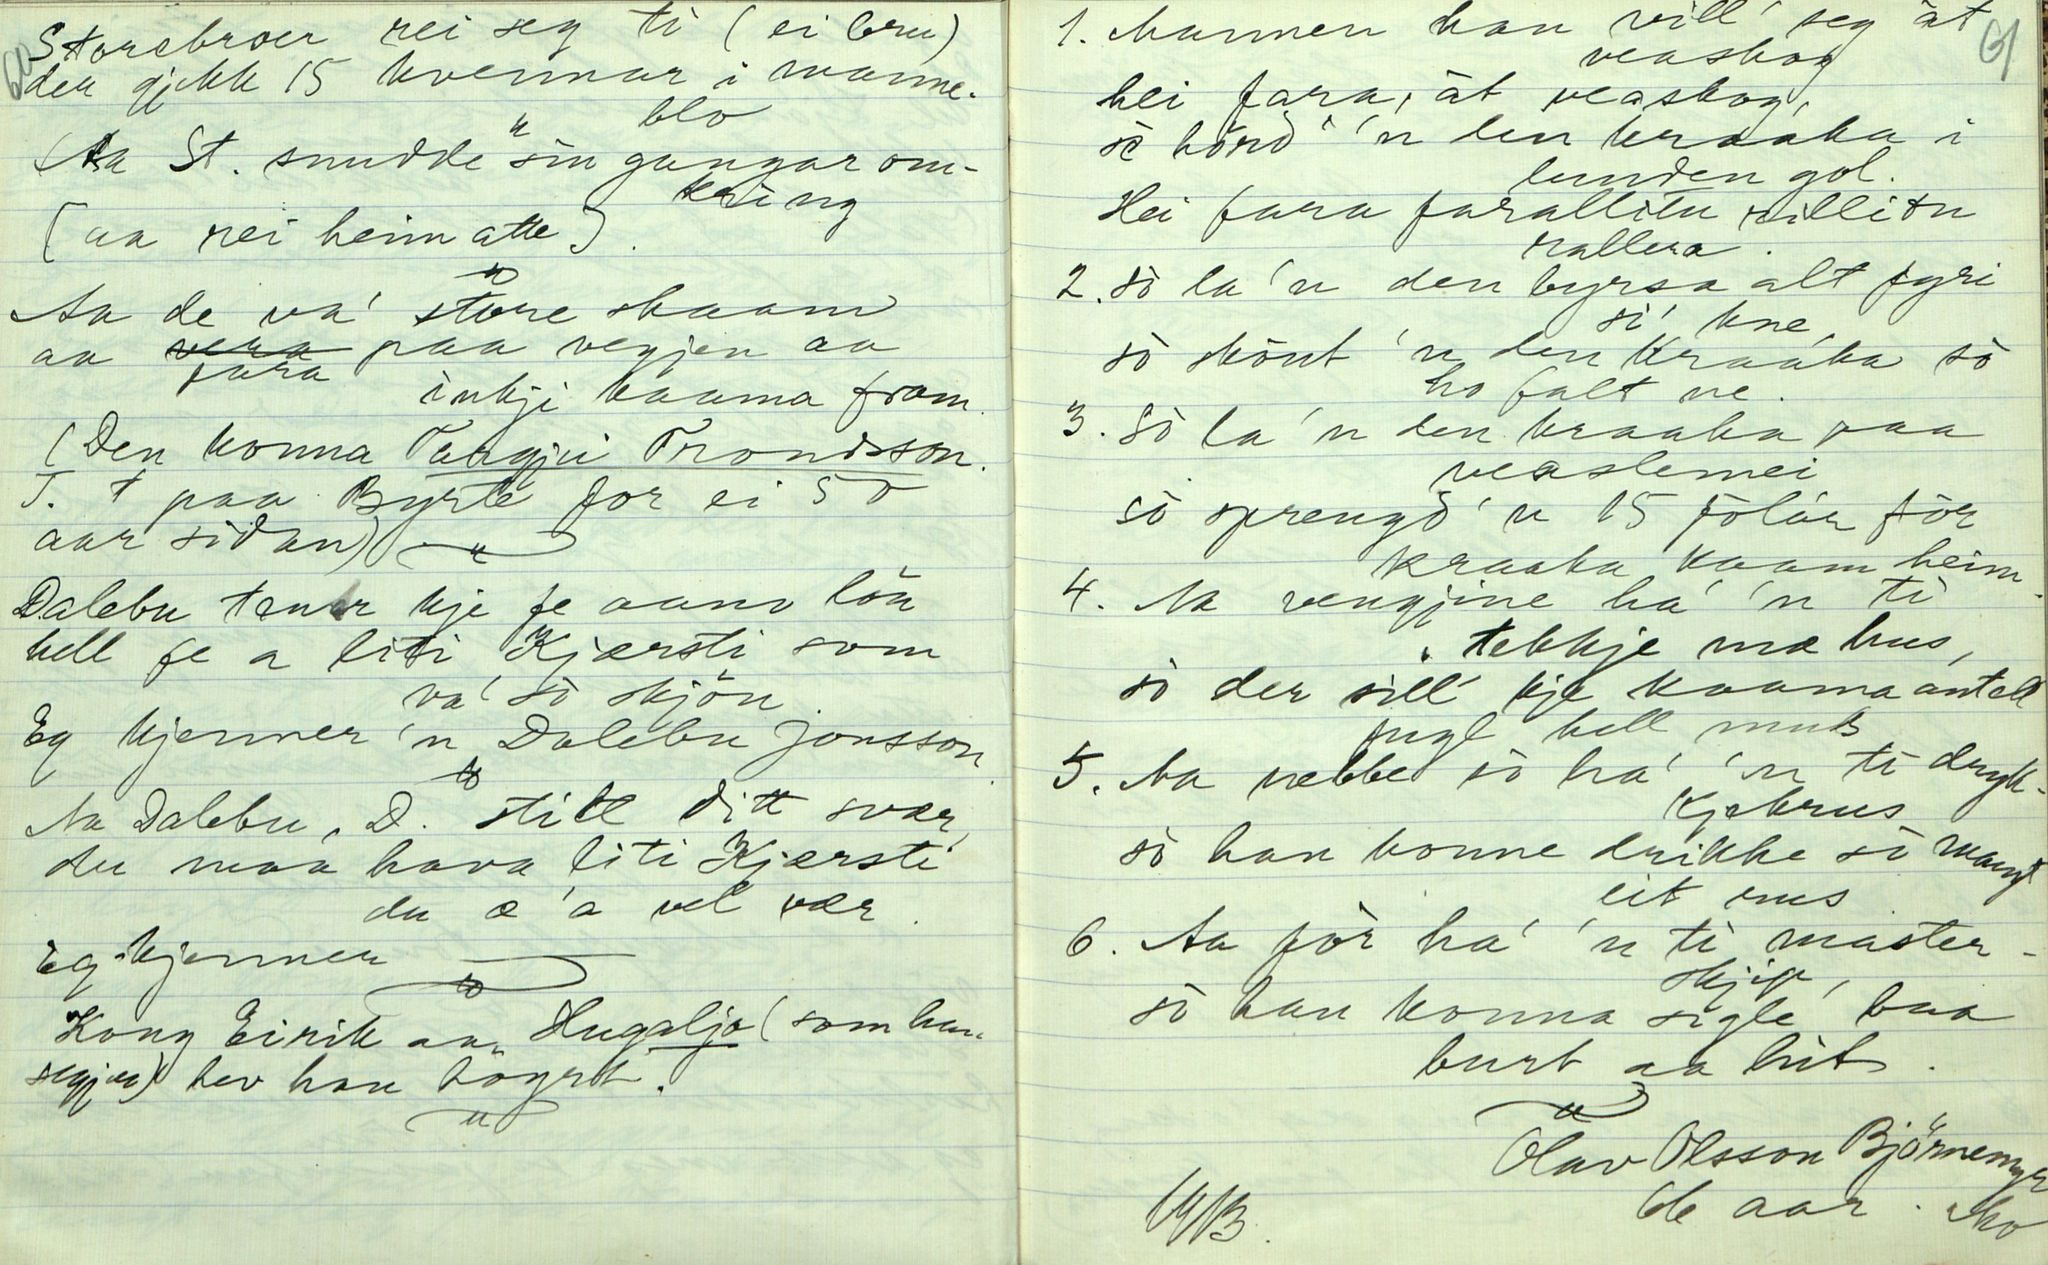 60
Storebroer rei seg ti (ei bru)
der gjekk 15 kvennar i manne-
blo
(Aa St. snudde sin gangar om-
kring
(aa rei heimatte).
Aa de va' store skaam
aa vera paa vegjen aa
fara
inkji kaama fram.
(Den konna Taagjei Trondsson.
T. † paa Byrte for ei 50
aar sidan)
Dalebu tener kje fe aano lön
hell fe a liti Kjersti som
va' sò skjön.
Eg kjenner 'n Dalebu Jonsson
Aa Dalebu, D. stitt ditt svær,
du maa hava liti Kjærsti
du æ 'a vel vær.
Eg kjenner
Kong Eirik aa Hugaljo (som han
segjer) hev han höyrt.
61
1. Mannen han vill' seg åt
veaskog
hei fara, åt veaskog,
sò hörd' 'n den kraaka i
lunden gol.
Hei fara farallitu rillion
rallera.
2. Sò la 'n den byrsa alt fyri
si' kne,
sò sköut 'n den kraaka sò
ho falt ne.
3. Sò la 'n den kraaka paa
veaslemei
sò sprengd 'n 15 fölár för
kraaka kaam heim.
4. Aa vengjine ha' 'n ti
tekkje mæ hus,
sò der sill' kje kaama antell
fugl hell mus
5. Aa nebbe sò ha' 'n ti drykk-
kjekrus
sò han konne drikke sò mangt
eit rus
6. Aa fòr ha' 'n ti master-
skjip,
sò han konna sigle baa
burt aa hit.
Olav Olsson Björnemyr
aar. Mo
1913.